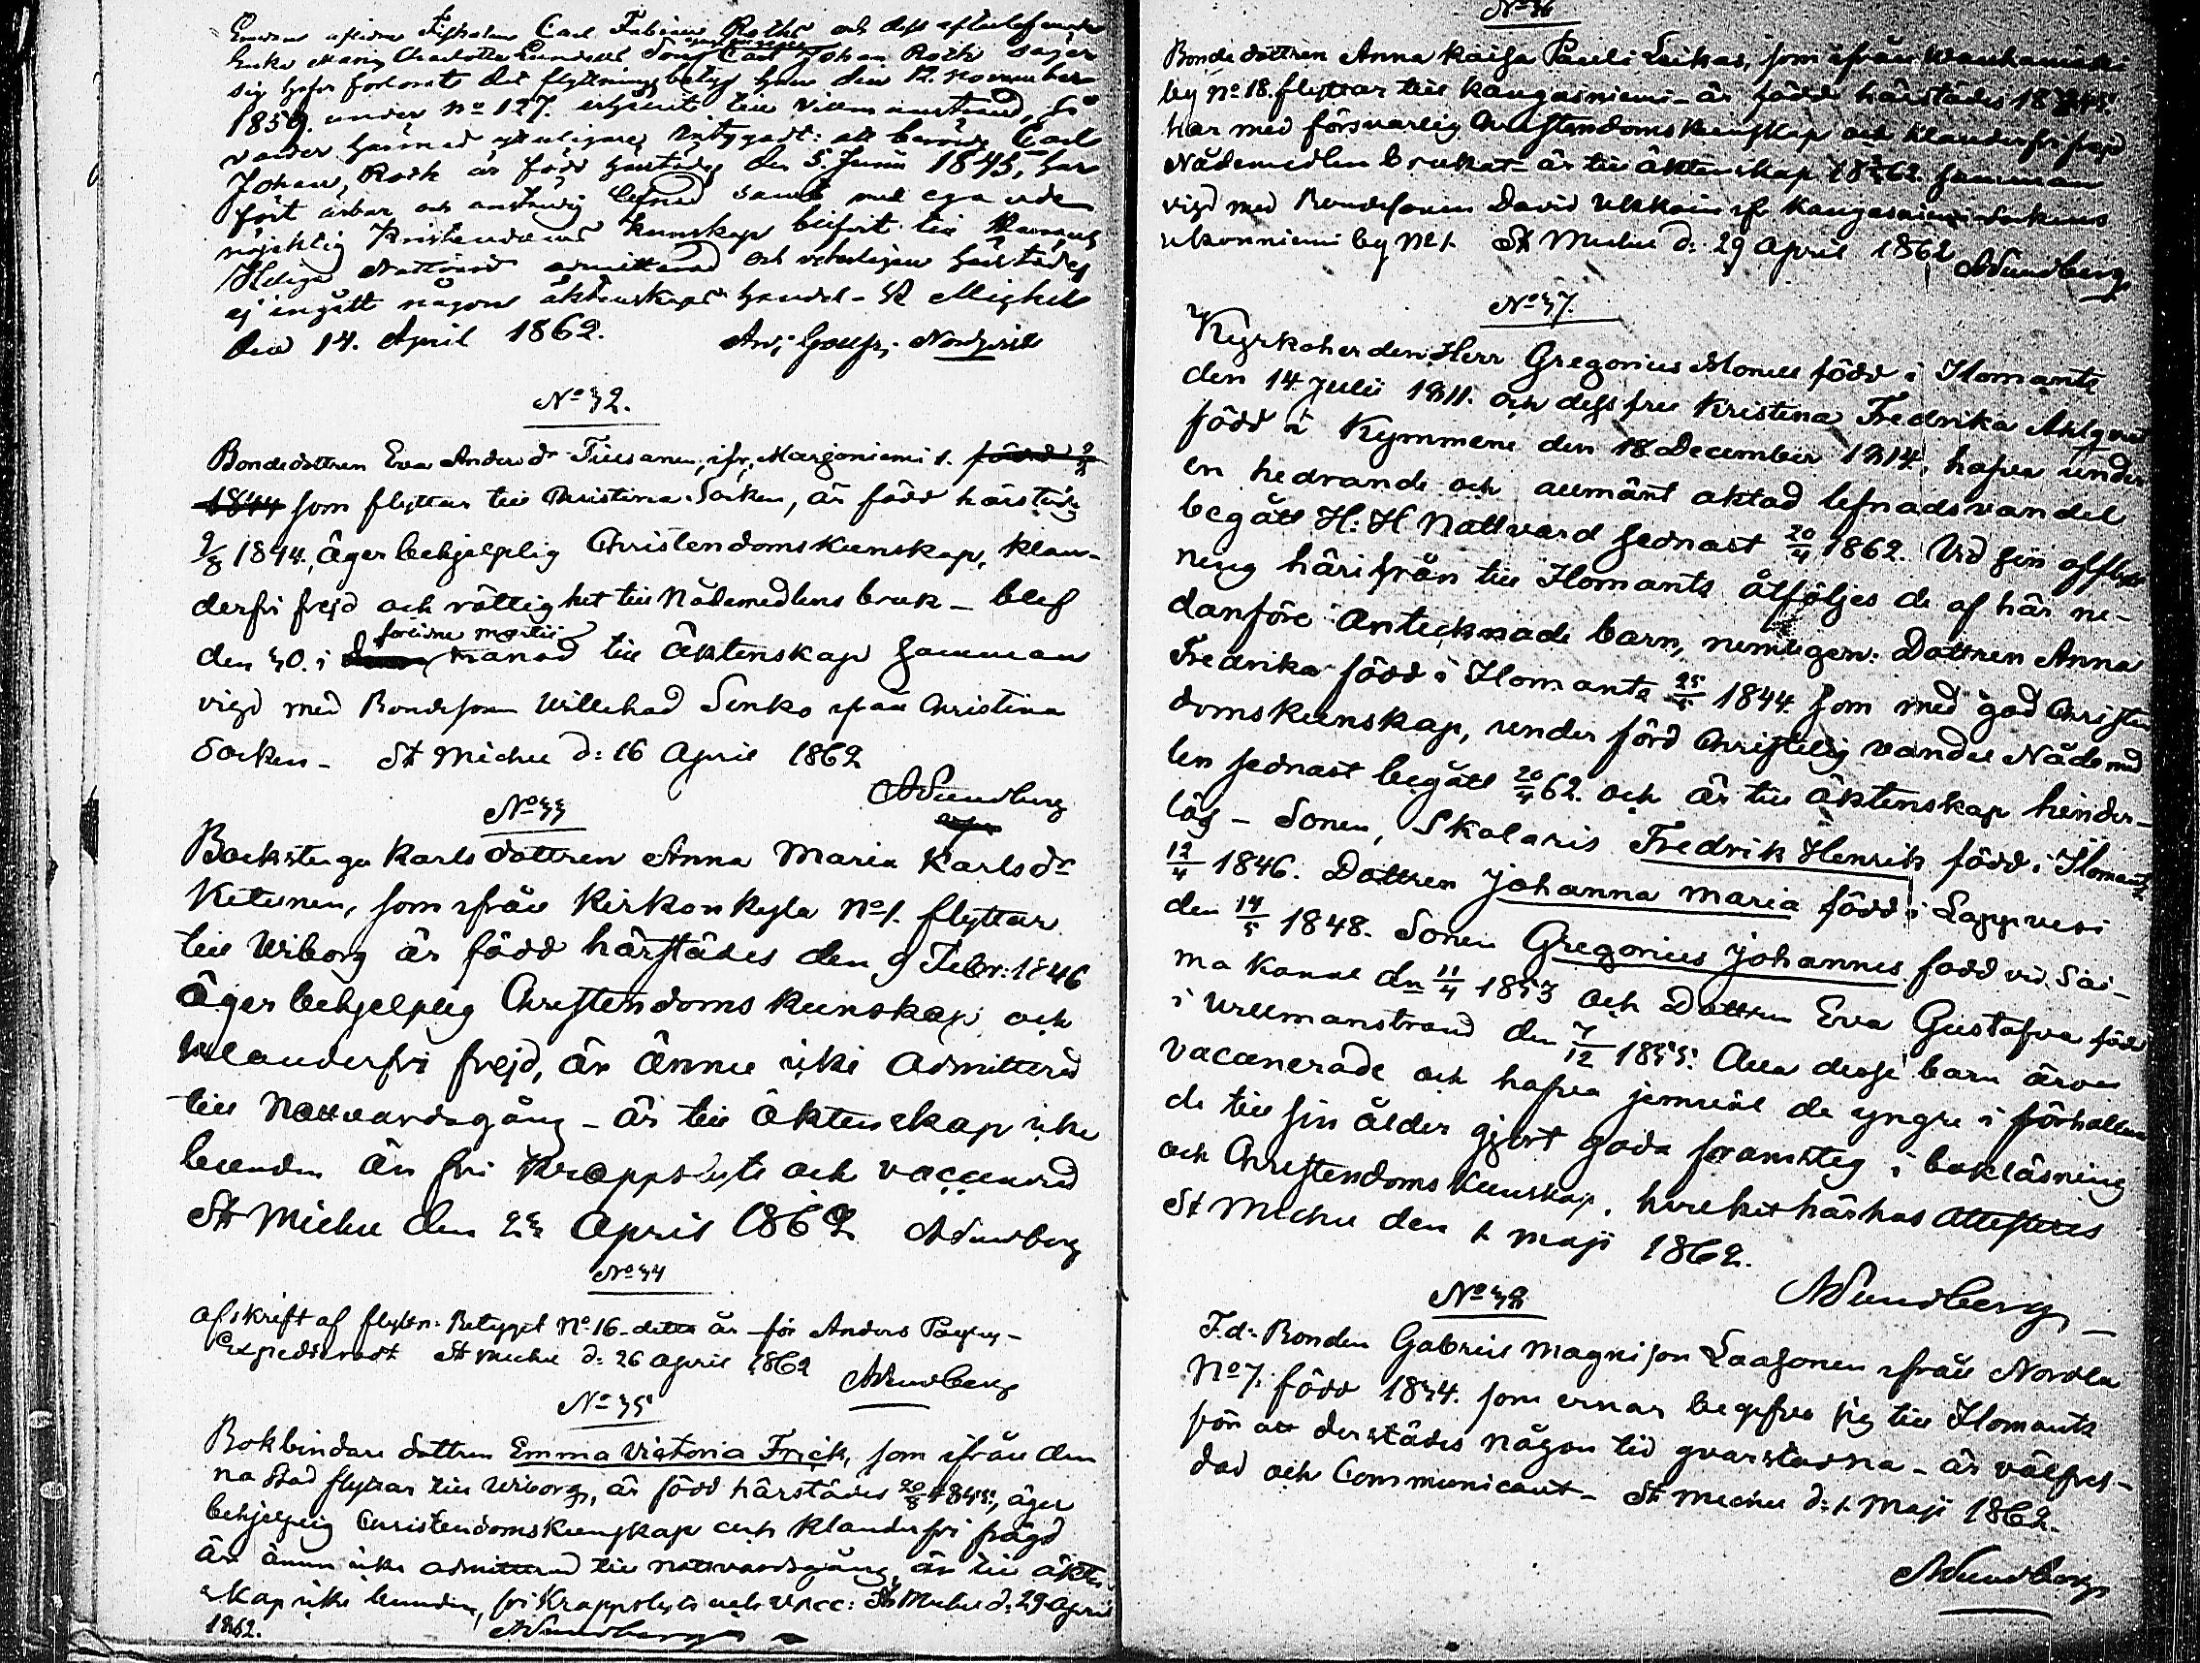 Emedan afledne Fiskalen Carl Fabian Roths och dess efterlefvande
Enka Maria Charlotta Lundells Son Carl Johan Roth säger
sig hafva förlorat det flyttningsbetyg hvar den 12 November
1859 under No 127. erhållit till Villmanstrand, så
varder härmed ytterligare intygadt: att bemälde Carl
Johan Roth är född härstädes den 5 Junii 1845, har
fört ärbar och anständig lefnad samt med egande
nöjaktig Kristendoms kunskap blifvit till Herrans
Heliga Nattvard admitterad och veterligen härstädes
ej ingått någon äktenskaps handel - St Michel
den 14. April 1862.
No 32.
Bondedottren Eva Andersdr Tiusanen, ifr. Marjoniemi 1. född 9/8
1844 som flyttar till Christina Socken, är född härstädes
9/8 1844, äger behjelplig Christendomskunskap, klan-
derfri frejd och rättighet till Nådemedlens bruk - blef
den 30. i förlidne martii månad till äktenskap samman
vigd med Bondesonen Willehad Sinko ifrån Christina
Socken - St Michel d: 16 April 1862
ASundberg
No 33
Backstugu Karlsdottren Anna Maria Karlsdr
Ketunen, som ifrån Kirkonkylä No 1. flyttar
till Wiborg är född härstädes den 9 Febr: 1846
äger behjelplig Christendoms kunskap och
klanderfri frejd, är ännu icke admitterad
till Nattvardsgång - är till äktenskap icke
bunden är fri Kroppslyte och vaccinerad
St Michel den 23 April 1862 ASundberg
No 34
Afskrift af flyttn: Betyget No 16 detta år - för Anders
Expedieradt St Michel d: 26 April 1862
ASundberg
No 35
Bokbindare dottren Emma Victoria Frick, som ifrån den
na Stad flyttar till Wiborg, är född härstädes 20/8 1845, äger
behjelplig Christendomskunskap och klanderfri frägd
är ännu icke admitterad till nattvardsgång, är till äkten
skap icke bunden, fri Kroppslyte och vacc: St Michel d: 29 April
1862. ASundberg
No 36
Bonde dottren Anna Kaisa Pauli Leikas, som ifrån
by No 18. flyttar till Kangasniemi - är född härstädes 1845
har med försvarlig Christendomskunskap och klanderfri frejd
Nådemedlen brukat - är till äktenskap 1862 samman
vigd med Bondesonen David Ukkoin ifr Kangasniemi Sockens
Ukonniemi by No 1. St Michel d: 29 April 1862 ASundberg
No 37.
Kyrkoherden Herr Gregorius Monell född i Ilomants
den 14 Julii 1811. och dess fru Kristina Fredrika Ahlqvist
född i Kymmene den 18 December 1814, hafva under
en hedrande och allmänt aktad lefnadsvandel
begått H: H Nattvard sednast 20/4 1862. Vid sin afflytt
ning härifrån till Ilomants åtföljes de af här ne-
danföre antecknade barn, nemligen: Dottren Anna
Fredrika född i Ilomants 25/5 1844. som med god Christen
domskunskap, under förd Christelig vandel Nådemed
len sednast begått 20/4 62. och är till äktenskap hinder-
lös - Sonen, Skolaris Fredrik Henrik född i Ilomants
12/4 1846. Dottren Johanna Maria född i Lappvesi
den 14/5 1848. Sonen Gregorius Johannes född vid Sai-
ma Kanal den 11/4 1853 och Dottren Eva Gustafva född
i Willmanstrand den 7/12 1855. Alla desse barn äro
vaccinerade och hafva jemväl de yngre i förhållan
de till sin ålder gjort goda framsteg i bokläsning
och Christendoms kunskap, hvilket härhos attesteras
St Michel den 1 maji 1862.
ASundberg
No 38
F.d. Bonden Gabriel Magnison Laasonen ifrån Nordla
No 7, född 1834. som ernar begifva sig till Ilomants
för att derstädes någon tid qvarstadna - är välfrej-
dad och Communicant - St Michel d: 1. Maji 1862.
ASundberg